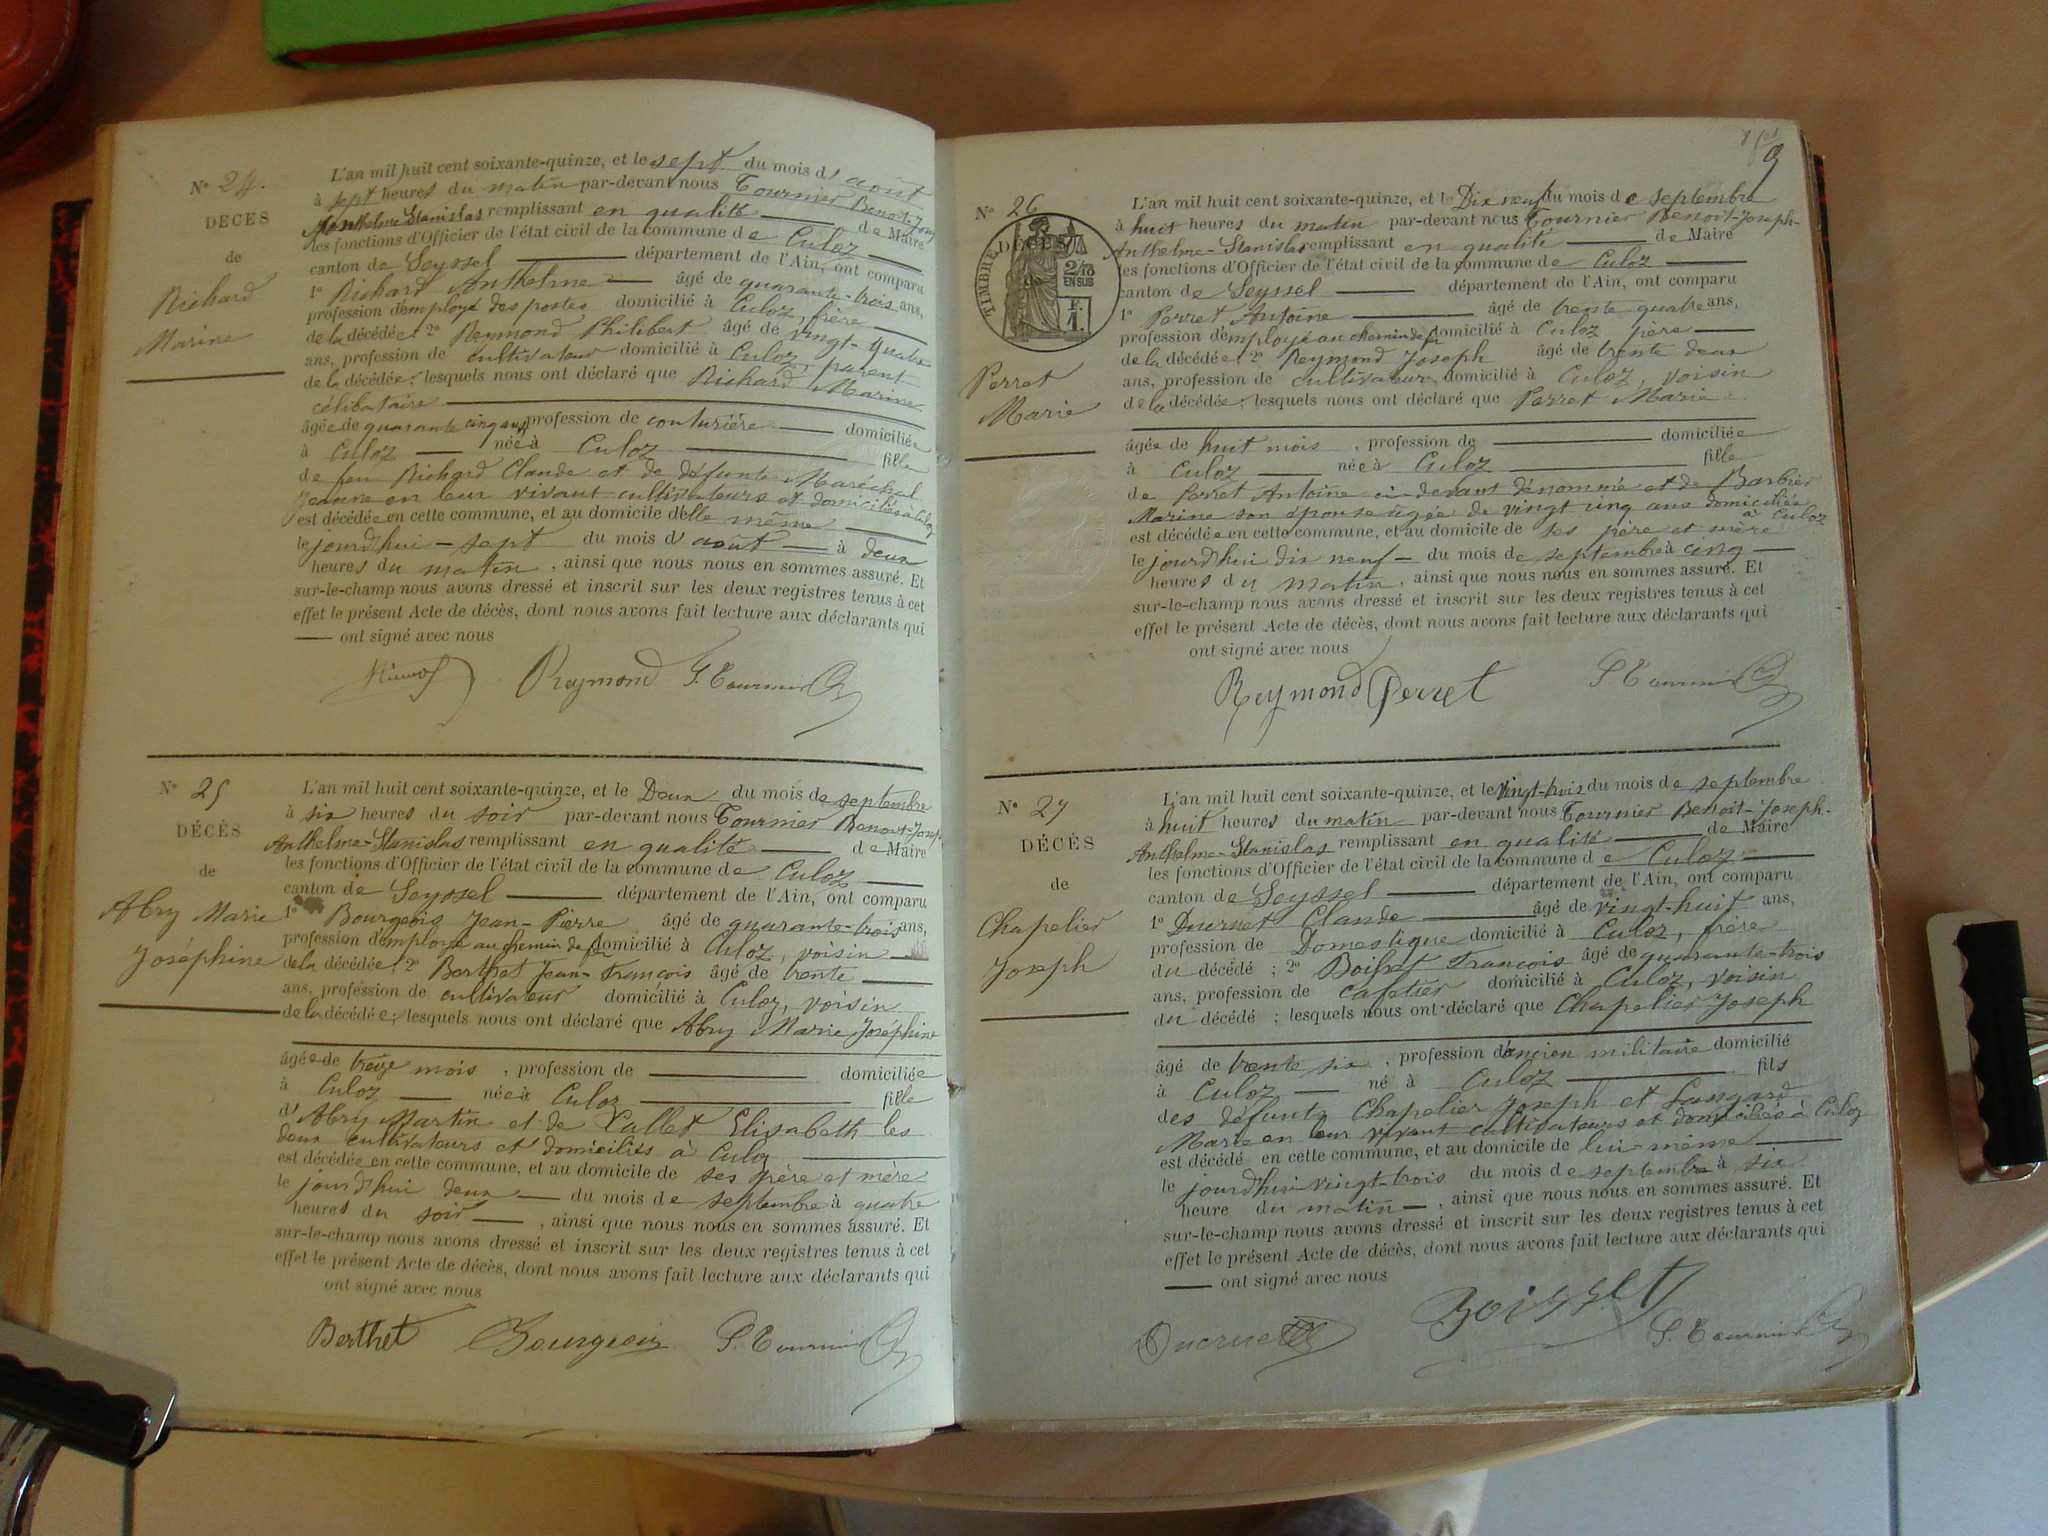 N° 24.
DÉCÈS
de
Richard
Marine
L'an mil huit cent soixante-quinze, et le sept du mois d'août
à sept heures du matin par-devant nous Tournier Benoit-Josep
Anthelme Stanislas remplissant en qualité de Maire
les fonctions d'Officier de l'état civil de la commune de Culoz
canton de Seyssel département de l'Ain, ont comparu
1° Richard Anthelme âgé de quarante-trois ans,
profession d'employé des postes domicilié à Culoz, frère
de la décédée; 2° Reymond Philibert âgé de vingt-quatre
ans, profession de cultivateur domicilié à Culoz, parent
de la décédée; lesquels nous ont déclaré que Richard Marine
célibataire
âgée de quarante cinq ans, profession de couturière domiciliée
à Culoz née à Culoz fille
de feu Richard Claude et de défunte Maréchal
Jeanne en leur vivant cultivateurs et domiciliés à Culoz
est décédée en cette commune, et au domicile d'elle même
le jourd'hui sept du mois d'août à deux
heures du matin, ainsi que nous nous en sommes assuré. Et
sur-le-champ nous avons dressé et inscrit sur les deux registres tenus à cet
effet le présent Acte de décès, dont nous avons fait lecture aux déclarants qui
ont signé avec nous
Reymond S. Tournier
N° 25
DÉCÈS
de
Abry Marie
Joséphine
L'an mil huit cent soixante-quinze, et le Deux du mois de septembre
à six heures du soir par-devant nous Tournier Benoit-Josep-
Anthelme-Stanislas remplissant en qualité de Maire
les fonctions d'Officier de l'état civil de la commune de Culoz
canton de Seyssel département de l'Ain, ont comparu
1° Bourgeois Jean-Pierre âgé de quarante-trois ans,
profession d'employé au chemin de fer domicilié à Culoz, voisin
de la décédée; 2° Berthet Jean-François âgé de trente
ans, profession de cultivateur domicilié à Culoz, voisin
de la décédée; lesquels nous ont déclaré que Abry Marie Joséphine
âgée de treize mois, profession de domiciliée
à Culoz née à Culoz fille
d'Abry Martin et de Lallet Elisabeth les
deux cultivateurs et domiciliés à Culoz
est décédée en cette commune, et au domicile de ses père et mère
le jourd'hui deux du mois de septembre à quatre
heures du soir, ainsi que nous nous en sommes assuré. Et
sur-le-champ nous avons dressé et inscrit sur les deux registres tenus à cet
effet le présent Acte de décès, dont nous avons fait lecture aux déclarants qui
ont signé avec nous
Berthet Bourgeois S. Tournier
9
N° 26
DÉCÈS
TIMBRE
2/10
EN SUS
F.
1.
Perret
Marie
L'an mil huit cent soixante-quinze, et le Dix neuf du mois de septembre
à huit heures du matin par-devant nous Tournier Benoit-Joseph-
Anthelme-Stanislas remplissant en qualité de Maire
les fonctions d'Officier de l'état civil de la commune de Culoz
canton de Seyssel département de l'Ain, ont comparu
1° Perret Antoine âgé de trente quatre ans,
profession d'employé au chemin de fer domicilié à Culoz père
de la décédée; 2° Reymond Joseph âgé de trente deux
ans, profession de cultivateur domicilié à Culoz, voisin
de la décédée; lesquels nous ont déclaré que Perret Marie
âgée de huit mois, profession de domiciliée
à Culoz née à Culoz fille
de Perret Antoine ci-devant dénommé et de Barbier
Marine son épouse âgée de vingt cinq ans domiciliée à Culoz
est décédée en cette commune, et au domicile de ses père et mère
le jourd'hui dix neuf du mois de septembre à cinq
heures du matin, ainsi que nous nous en sommes assuré. Et
sur-le-champ nous avons dressé et inscrit sur les deux registres tenus à cet
effet le présent Acte de décès, dont nous avons fait lecture aux déclarants qui
ont signé avec nous
Reymond Perret S. Tournier
N° 27
DÉCÈS
de
Chapelier
Joseph
L'an mil huit cent soixante-quinze, et le vingt-trois du mois de septembre
à huit heures du matin par-devant nous Tournier Benoit-Joseph-
Anthelme-Stanislas remplissant en qualité de Maire
les fonctions d'Officier de l'état civil de la commune de Culoz
canton de Seyssel département de l'Ain, ont comparu
1° Ducruet Claude âgé de vingt-huit ans,
profession de Domestique domicilié à Culoz, frère
du décédé; 2° Boisset François âgé de quarante-trois
ans, profession de cafetier domicilié à Culoz, voisin
du décédé; lesquels nous ont déclaré que Chapelier Joseph
âgé de trente six, profession d'ancien militaire domicilié
à Culoz né à Culoz fils
des défunts Chapelier Joseph et
Marie en leur vivant cultivateurs et domiciliés à Culoz
est décédé en cette commune, et au domicile de lui-même
le jourd'hui vingt-trois du mois de septembre à six
heure du matin, ainsi que nous nous en sommes assuré. Et
sur-le-champ nous avons dressé et inscrit sur les deux registres tenus à cet
effet le présent Acte de décès, dont nous avons fait lecture aux déclarants qui
ont signé avec nous
Ducruet Boisset S. Tournier